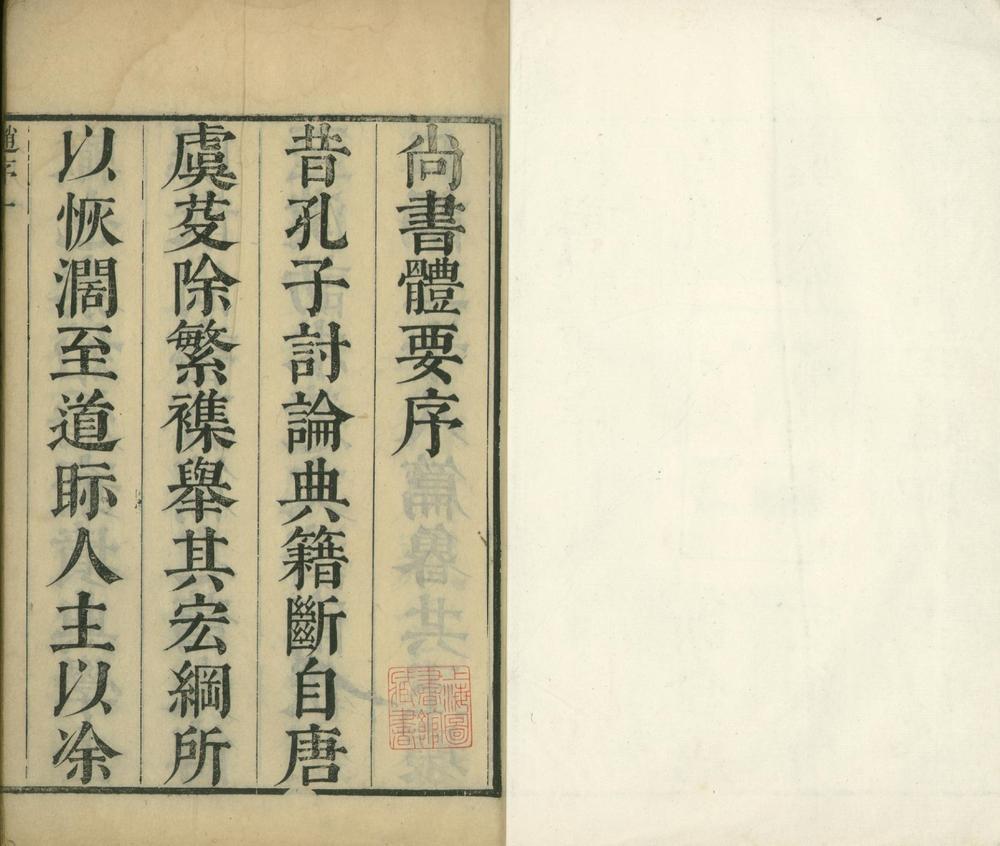 尚書體要序
昔孔子討論典籍斷自唐
虞芟除繁襍舉其宏綱所
以恢濶至道眎人主以凃
上海圖書館藏書